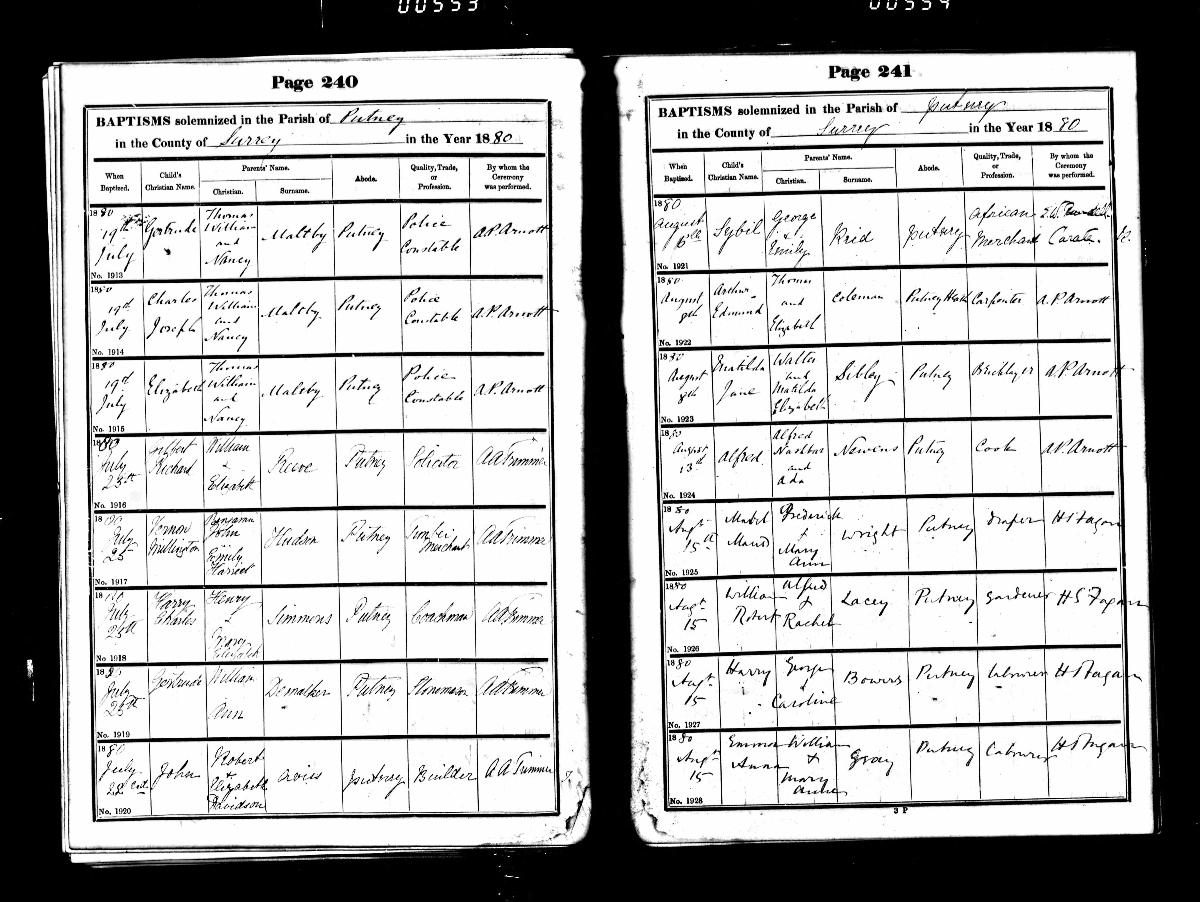 00553
00554
Page 240
BAPTISMS solemnized in the Parish of Putney
in the County of Surrey in the Year 1880
When Baptized. Child's Christian Name. Parents' Name. Christian. Surname. Abode. Quality, Trade, or Profession. By whom the Ceremony was performed.
1880 19th July Gertrude Thomas William and Nancy Maltby Putney Police Constable A.P. Arnott
No. 1913
1880 19th July Charles Joseph Thomas William and Nancy Maltby Putney Police Constable A.P. Arnott
No. 1914
1880 19th July Elizabeth Thomas William and Nancy Maltby Putney Police Constable A.P. Arnott
No. 1915
1880 July 25th Gilbert Richard William + Elizabeth Reeve Putney Solicitor AATrimmer
No. 1916
1880 July 25 Vernon Millington Benjamin John + Emily Harriet Hudson Putney Timber Merchant AATrimmer
No. 1917
1880 July 25th Harry Charles Henry + Simmons Putney Coachman AATrimmer
No. 1918
1880 July 25th Gertrude William Ann Putney Stonemason AATrimmer
No. 1919
1880 July John Robert + Elizabeth Davidson Putney Builder A A Trimmer
No. 1920
Page 241
BAPTISMS solemnized in the Parish of Putney
in the County of Surrey in the Year 1880
When Baptized. Child's Christian Name. Parents' Name. Christian. Surname. Abode. Quality, Trade, or Profession. By whom the Ceremony was performed.
1880 August 6th Sybil George J. + Emily Reid Putney African Merchant Curate
No. 1921
1880 August 8th Arthur Edmund Thomas and Elizabeth Coleman Putney Heath Carpenter A.P. Arnott
No. 1922
1880 August 8th Matilda Jane Walter and Matilda Elizabeth Sibley Putney Bricklayer A.P. Arnott
No. 1923
1880 August 13th Alfred Alfred and Ada Newens Putney Cook A.P. Arnott
No. 1924
1880 Augt 15th Mabel Maud Frederick + Mary Ann Wright Putney Draper H S Fagan
No. 1925
1880 Augt 15 William Robert Alfred + Rachel Lacey Putney Gardener H S Fagan
No. 1926
1880 Augt 15 Harry George + Caroline Bowers Putney Labourer H S Fagan
No. 1927
1880 Augt 15 Emma Anna William + Mary Anne Gray Putney Labourer H S Fagan
No. 1928
3 P